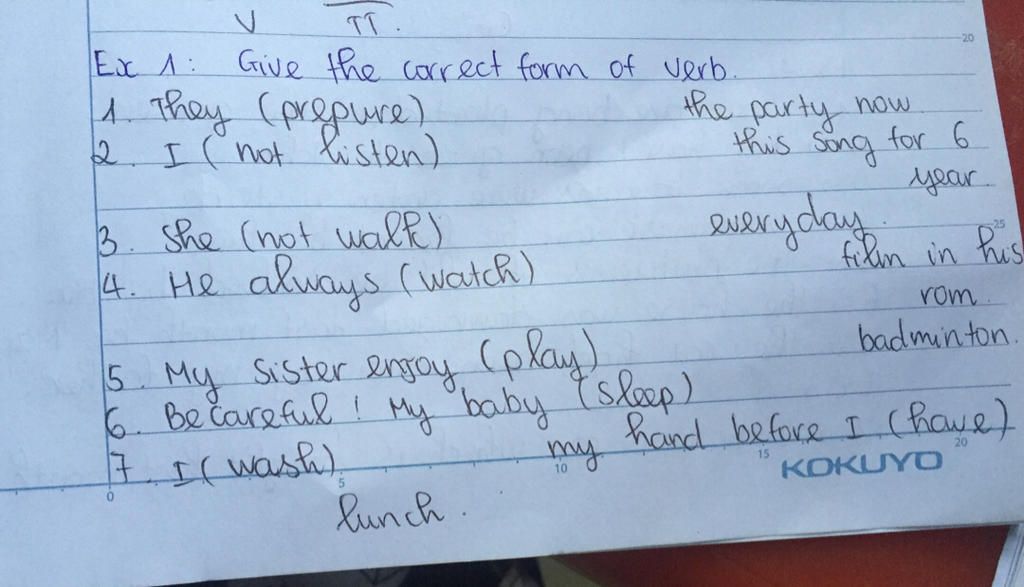 V TT.
Ex 1: Give the correct form of verb.
1. They (prepure) the party now
2. I (not listen) this song for 6
year.
3. She (not walk) everyday.
4. He always (watch) film in his
rom.
5. My sister enjoy (play) badminton.
6. Be careful! My baby (sleep)
7. I (wash) my hand before I (have)
lunch.
20
25
0 5 10 15 20
KOKUYO